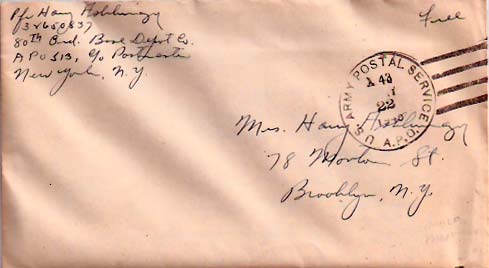 Pfc Harry
32650837
80th Ord. Base Depot Co.
A P O 513, c/o Postmaster
New York, N.Y.
Free
U.S. ARMY POSTAL SERVICE
A 43
22
A.P.O.
Mrs. Harry
78 St.
Brooklyn, N.Y.